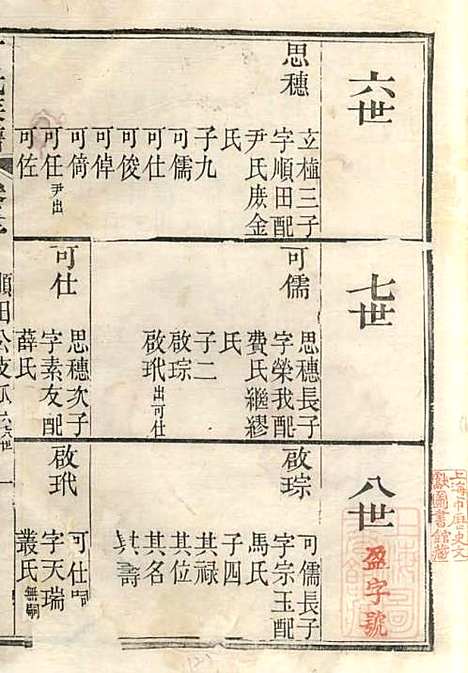 六世
思穗
立樁三子
字順田配
尹氏庶金
氏
子九
可儒
可仕
可俊
可倬
可倚
可任尹出
可佐
七世
可儒
思穗長子
字榮我配
費氏繼繆
氏
子二
啟琮
啟玳出可仕
可仕
思穗次子
字素友配
薛氏
八世
啟琮
可儒長子
字宗玉配
馬氏
子四
其祿
其位
其名
其壽
啟玳
可仕嗣
字天瑞
叢氏無嗣
順田公支
六七八世
盈字號
上海市歷史文
獻圖書館藏